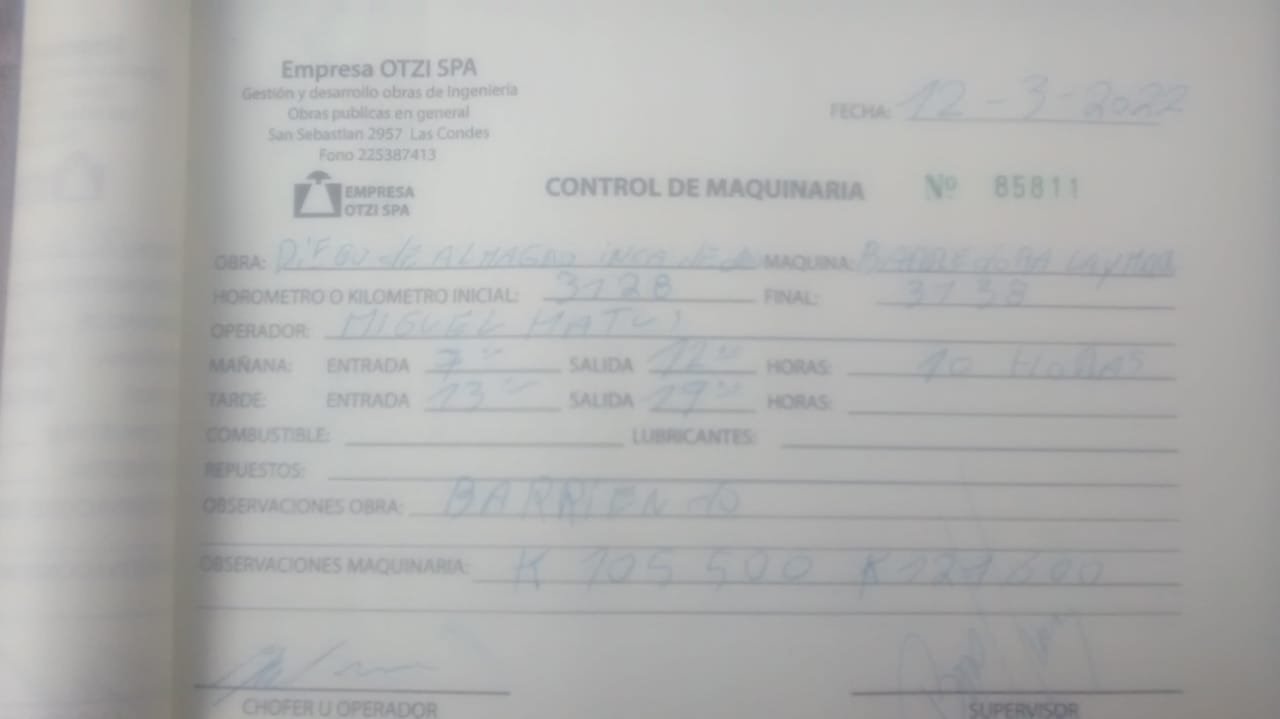 Empresa OTZI SPA
Gestión y desarrollo obras de Ingeniería
Obras publicas en general
San Sebastian 2957 Las Condes
Fono 225387413
FECHA: 12-3-2022
EMPRESA
OTZI SPA
CONTROL DE MAQUINARIA Nº 85811
OBRA: DiEGO de ALMAGRO inca de MAQUINA:
HOROMETRO O KILOMETRO INICIAL: 3128 FINAL: 3138
OPERADOR: MIGUEL
MAÑANA: ENTRADA 7 SALIDA 12 HORAS: 10 HORAS
TARDE: ENTRADA 13 SALIDA HORAS:
COMBUSTIBLE: LUBRICANTES:
REPUESTOS:
OBSERVACIONES OBRA: BARRIENdo
OBSERVACIONES MAQUINARIA: K 105 500
CHOFER U OPERADOR SUPERVISOR